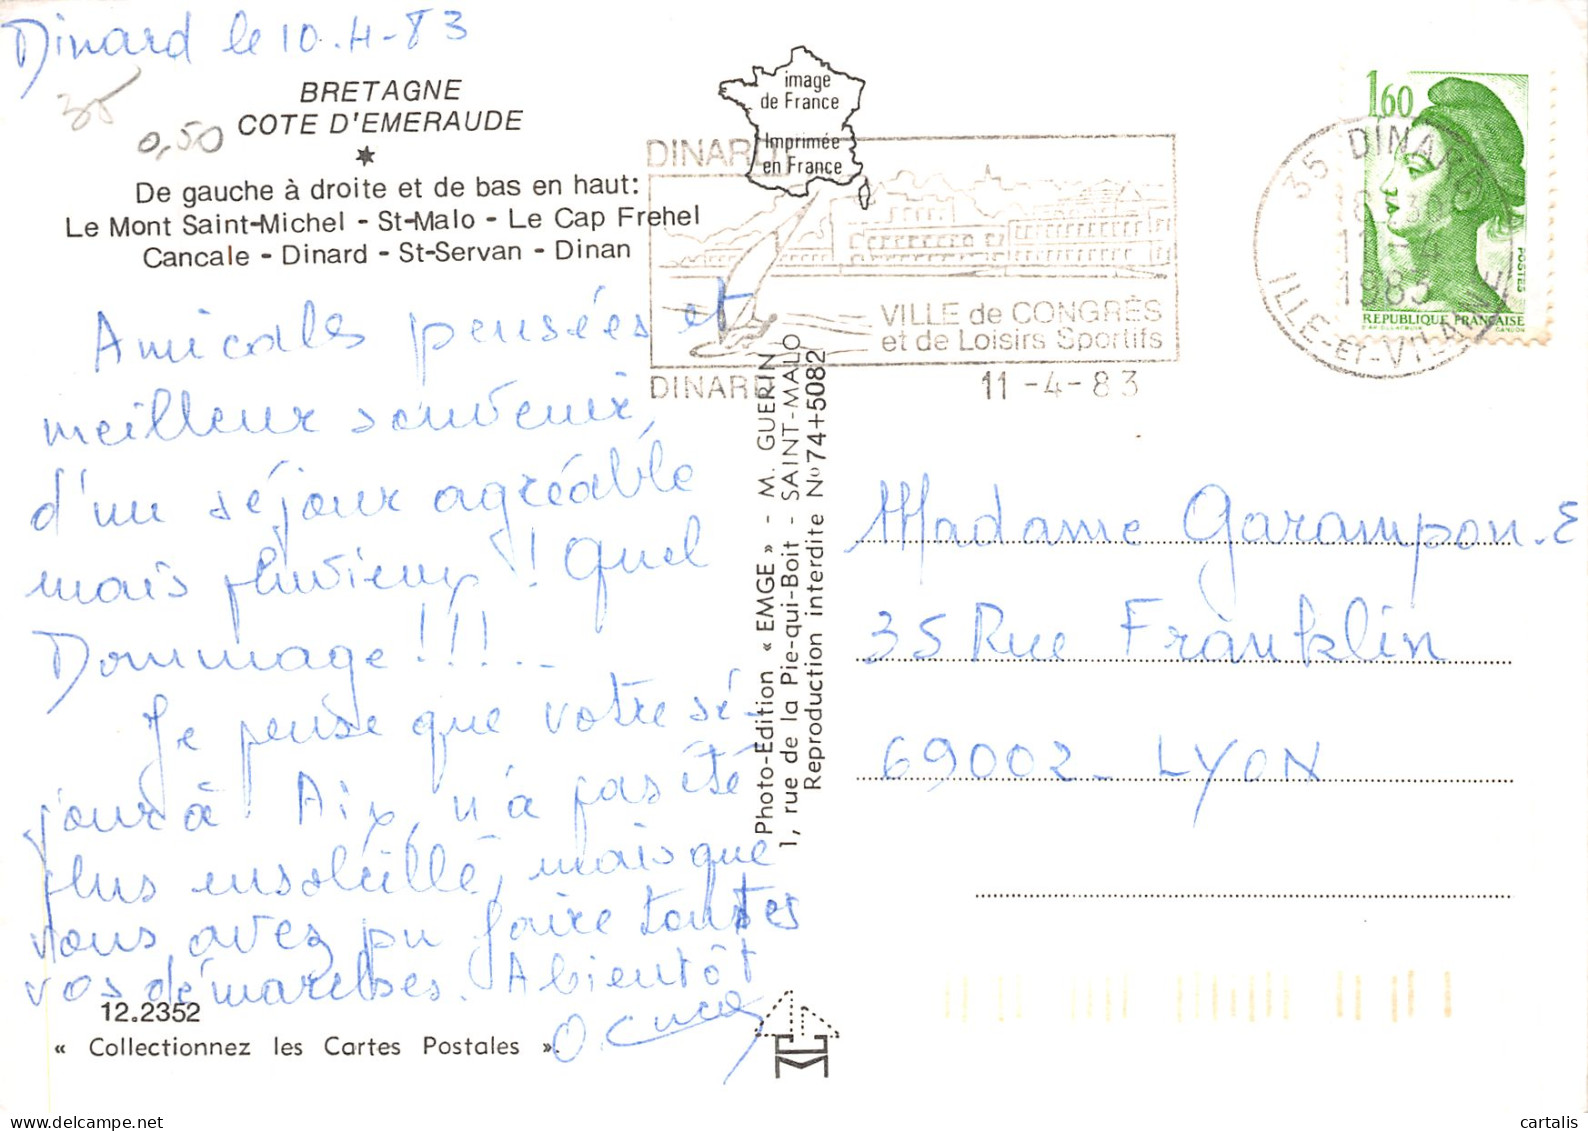 Dinard le 10.4-83
35
0,50
BRETAGNE
COTE D'EMERAUDE
De gauche à droite et de bas en haut:
Le Mont Saint-Michel - St-Malo - Le Cap Frehel
Cancale - Dinard - St-Servan - Dinan
Amicales pensées et
meilleur souvenir,
d'un séjour agréable
mais pluvieux! Quel
Dommage!!!..
Je pense que votre sé-
jour à Aix, n'a pas été
plus ensoleillé, mais que
vous avez pu faire toutes
vos démarches. A bientôt
12.2352
« Collectionnez les Cartes Postales ».
image
de France
Imprimée
en France
DINARD
VILLE de CONGRÈS
et de Loisirs Sportifs
DINARD
11-4-83
35 DINARD
11-4
1983
ILLE-ET-VILAINE
1,60
POSTES
REPUBLIQUE FRANÇAISE
Photo-Edition « EMGE » - M. GUERIN
1, rue de la Pie-qui-Boit - SAINT-MALO
Reproduction interdite No 74+5082
Madame Garampon.E
35 Rue Franklin
69002 - LYON
cartalis